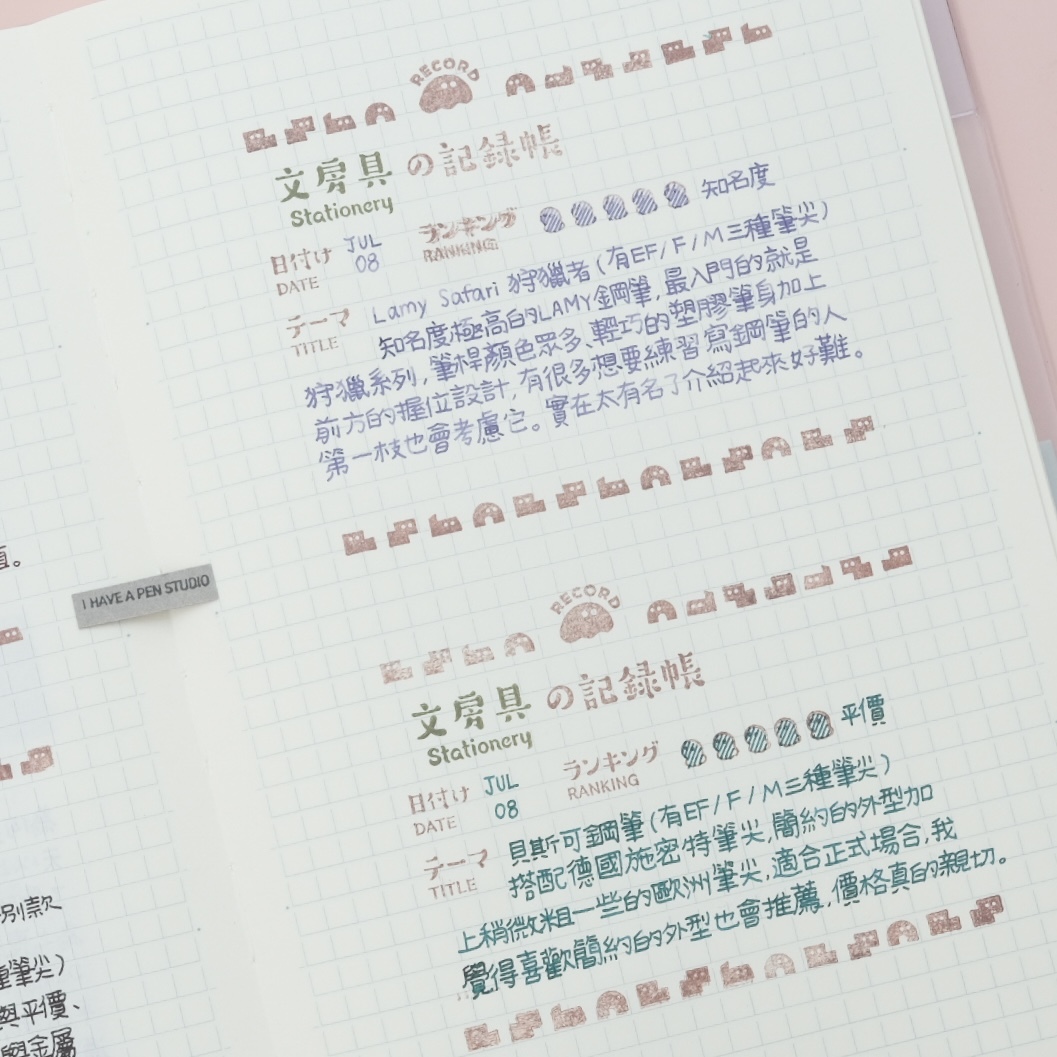 RECORD
文房具の記録帳
Stationery
日付け JUL ランキング 知名度
DATE 08 RANKING
テーマ Lamy Safari 狩獵者(有EF/F/M三種筆尖)
TITLE 知名度極高的LAMY鋼筆,最入門的就是
狩獵系列,筆桿顏色眾多、輕巧的塑膠筆身加上
前方的握位設計,有很多想要練習寫鋼筆的人
第一枝也會考慮它。實在太有名了介紹起來好難。
I HAVE A PEN STUDIO
RECORD
文房具の記録帳
Stationery
日付け JUL ランキング 平價
DATE 08 RANKING
テーマ 貝斯可鋼筆(有EF/F/M三種筆尖)
TITLE 搭配德國施密特筆尖,簡約的外型加
上稍微粗一些的歐洲筆尖,適合正式場合,我
覺得喜歡簡約的外型也會推薦,價格真的親切。
別款
筆尖)
與平價、
與金屬